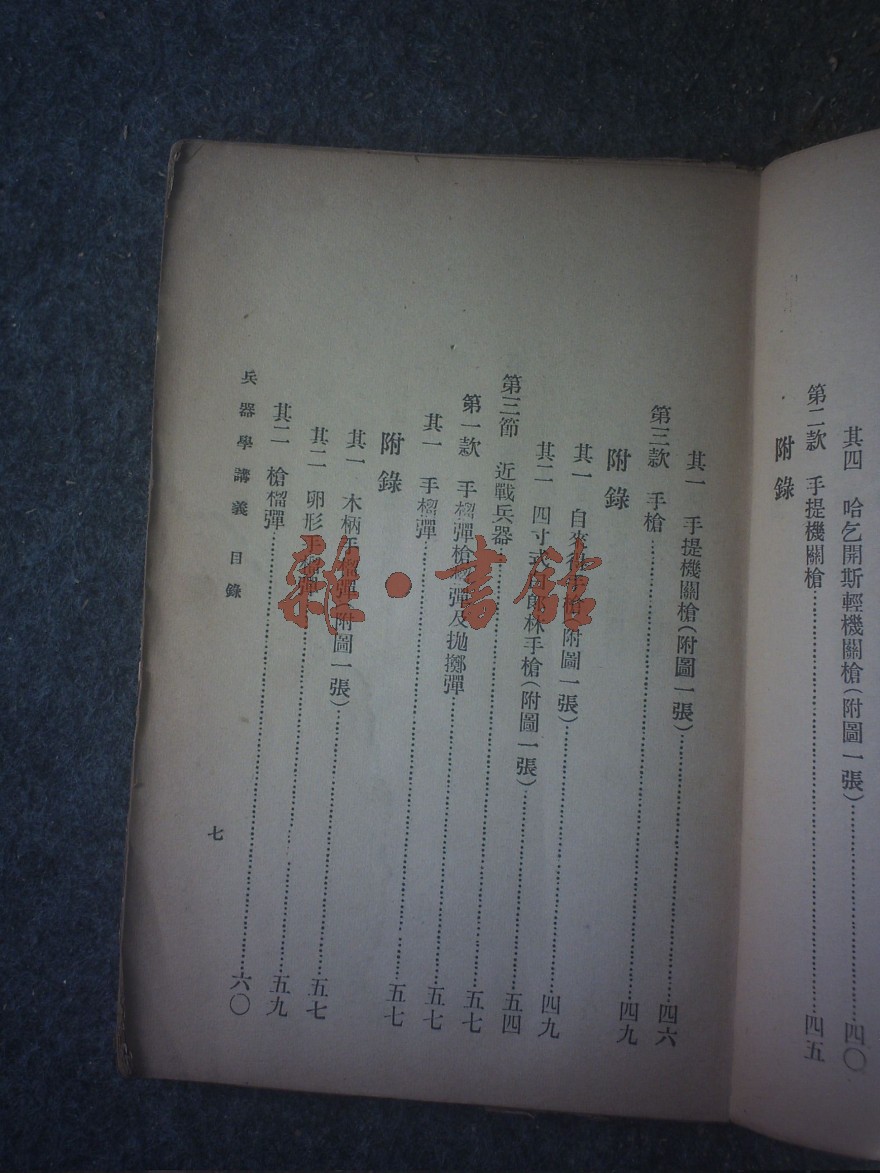 其四 哈乞開斯輕機關槍(附圖一張)……四〇
第二款 手提機關槍……四五
附錄
其一 手提機關槍(附圖一張)……四六
第三款 手槍……四九
附錄
其一 自來得手槍(附圖一張)……四九
其二 四寸式白郎林手槍(附圖一張)……五四
第三節 近戰兵器……五七
第一款 手榴彈槍榴彈及拋擲彈……五七
其一 手榴彈……五七
附錄
其一 木柄手榴彈(附圖一張)……五七
其二 卵形手榴彈……五九
其二 槍榴彈……六〇
兵器學講義 目錄 七
雜·書館